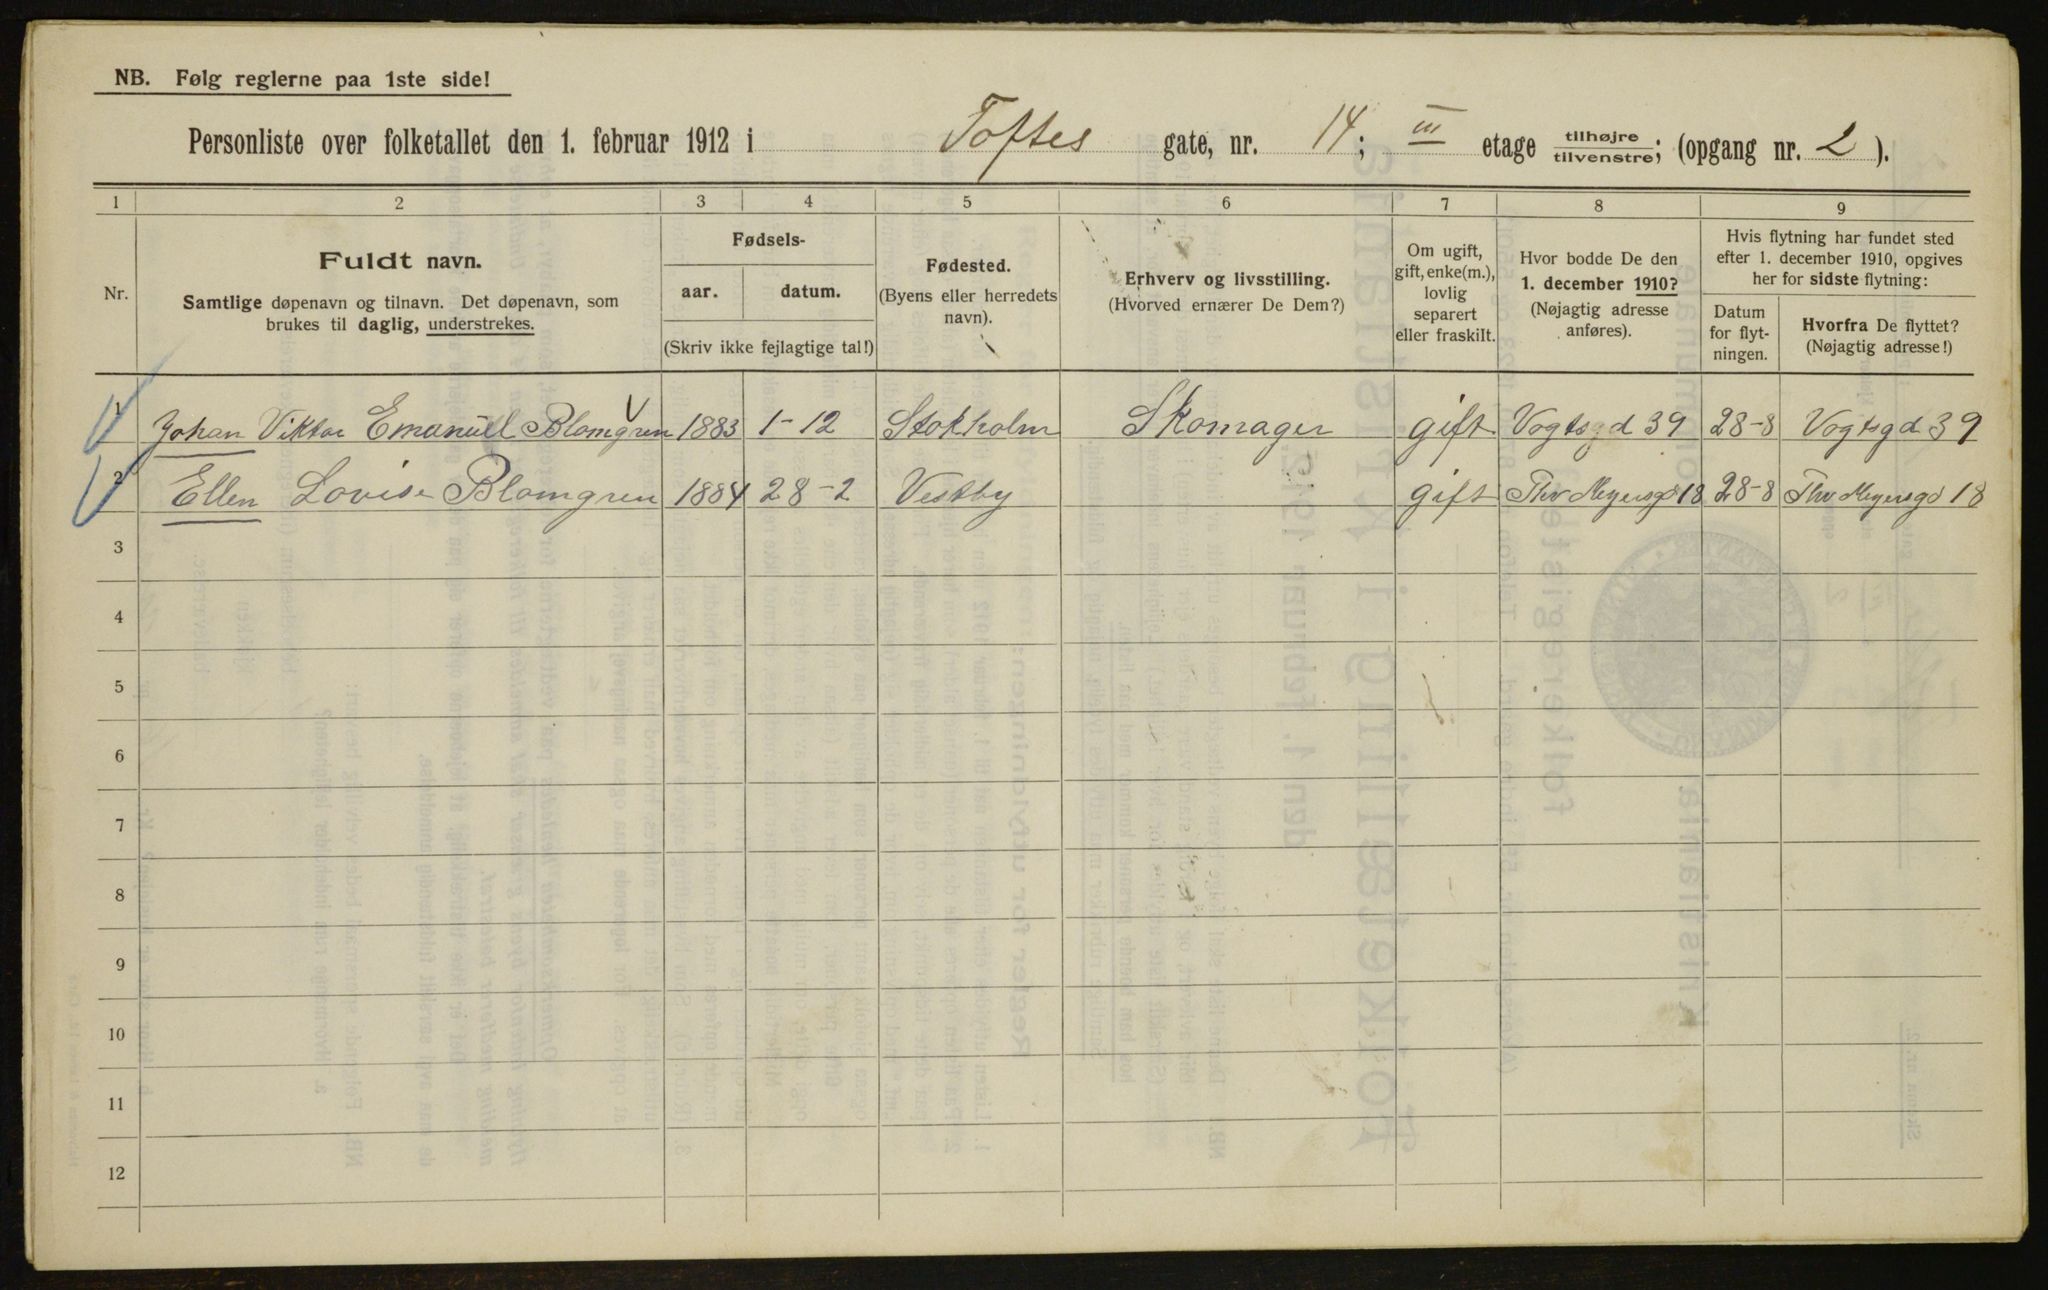 NB. Følg reglerne paa 1ste side!
Personliste over folketallet den 1. februar 1912 i Toftes gate, nr. 14; III etage tilhøjre/tilvenstre; (opgang nr. 2).
1 2 3 4 5 6 7 8 9
Nr.
Fuldt navn.
Samtlige døpenavn og tilnavn. Det døpenavn, som
brukes til daglig, understrekes.
Fødsels-
aar. datum.
(Skriv ikke fejlagtige tal!)
Fødested.
(Byens eller herredets
navn).
Erhverv og livsstilling.
(Hvorved ernærer De Dem?)
Om ugift,
gift, enke(m.),
lovlig
separert
eller fraskilt.
Hvor bodde De den
1. december 1910?
(Nøjagtig adresse
anføres).
Hvis flytning har fundet sted
efter 1. december 1910, opgives
her for sidste flytning:
Datum
for flyt-
ningen.
Hvorfra De flyttet?
(Nøjagtig adresse!)
1 Johan Viktor Emanuel Blomgren 1883 1-12 Stokholm Skomager gift Vogtsgd 39 28-8 Vogtsgd 39
2 Ellen Lovise Blomgren 1884 28-2 Vestby gift Thv Meyersgd 18 28-8 Thv Meyersgd 18
3
4
5
6
7
8
9
10
11
12